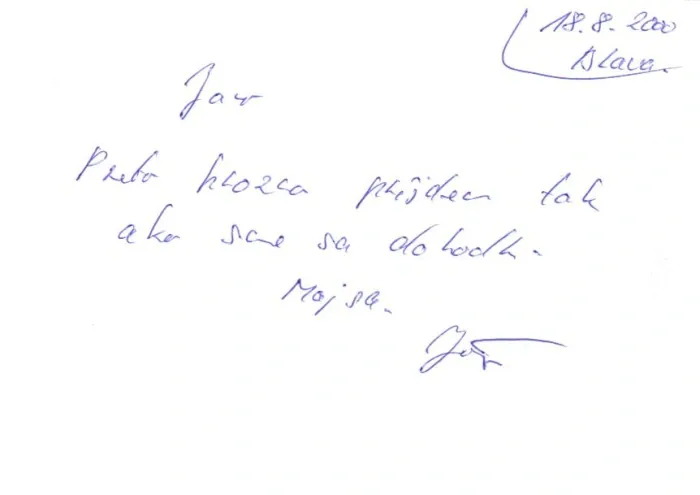 18.8.2000
Blava.
Jar
Preto hrozna prijdem tak
ako sme sa dohodli.
Maj sa.